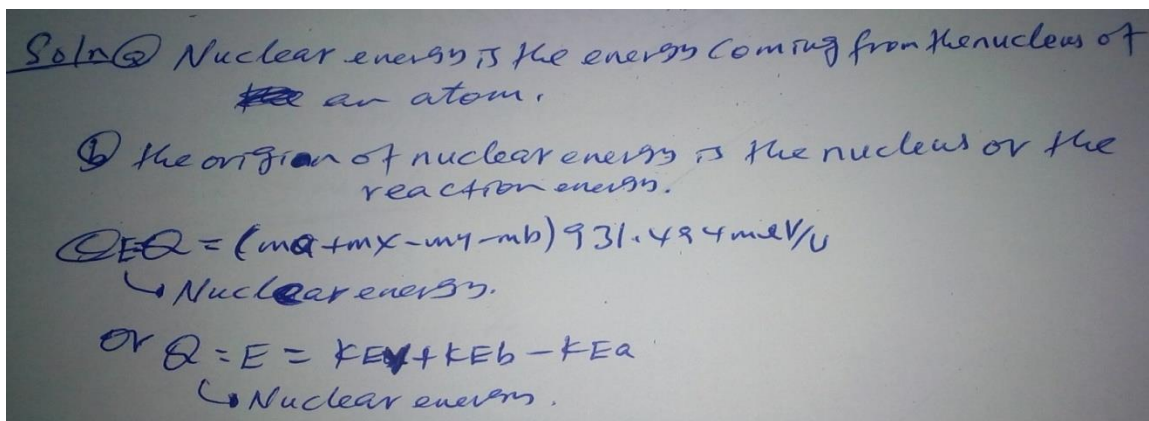 Soln ⓐ Nuclear energy is the energy coming from the nucleus of
an atom.
ⓑ the origian of nuclear energy is the nucleus or the
reaction energy.
ⓒ E Q = (ma + mx - my - mb) 931.494 meV/U
↳ Nuclear energy.
or Q = E = KEY + KEb - KEa
↳ Nuclear energy.